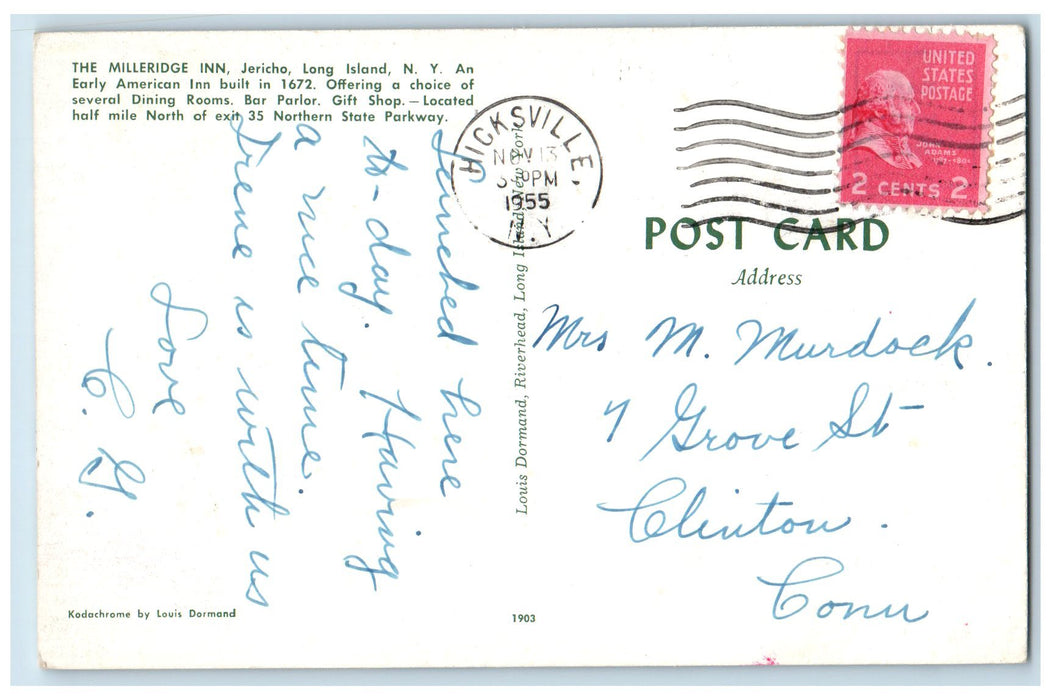 THE MILLERIDGE INN, Jericho, Long Island, N. Y. An
Early American Inn built in 1672. Offering a choice of
several Dining Rooms. Bar Parlor. Gift Shop.—Located
half mile North of exit 35 Northern State Parkway.
Lunched here
to-day. Having
a nice time.
Irene is with us
Love
C. G.
Kodachrome by Louis Dormand
Louis Dormand, Riverhead, Long Island, New York
1903
HICKSVILLE,
NOV 13
PM
1955
N.Y.
UNITED
STATES
POSTAGE
JOHN
ADAMS
2 CENTS 2
POST CARD
Address
Mrs M. Murdock.
7 Grove St
Clinton.
Conn